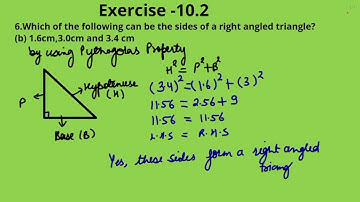 Exercise -10.2
6.Which of the following can be the sides of a right angled triangle?
(b) 1.6cm,3.0cm and 3.4 cm
by using Pythagolas Property
H² = P²+B²
Hypotenuse
(H)
P
Base (B)
(3.4)² = (1.6)² + (3)²
11.56 = 2.56 + 9
11.56 = 11.56
L.H.S = R.H.S
Yes, these sides form a right angled
triang